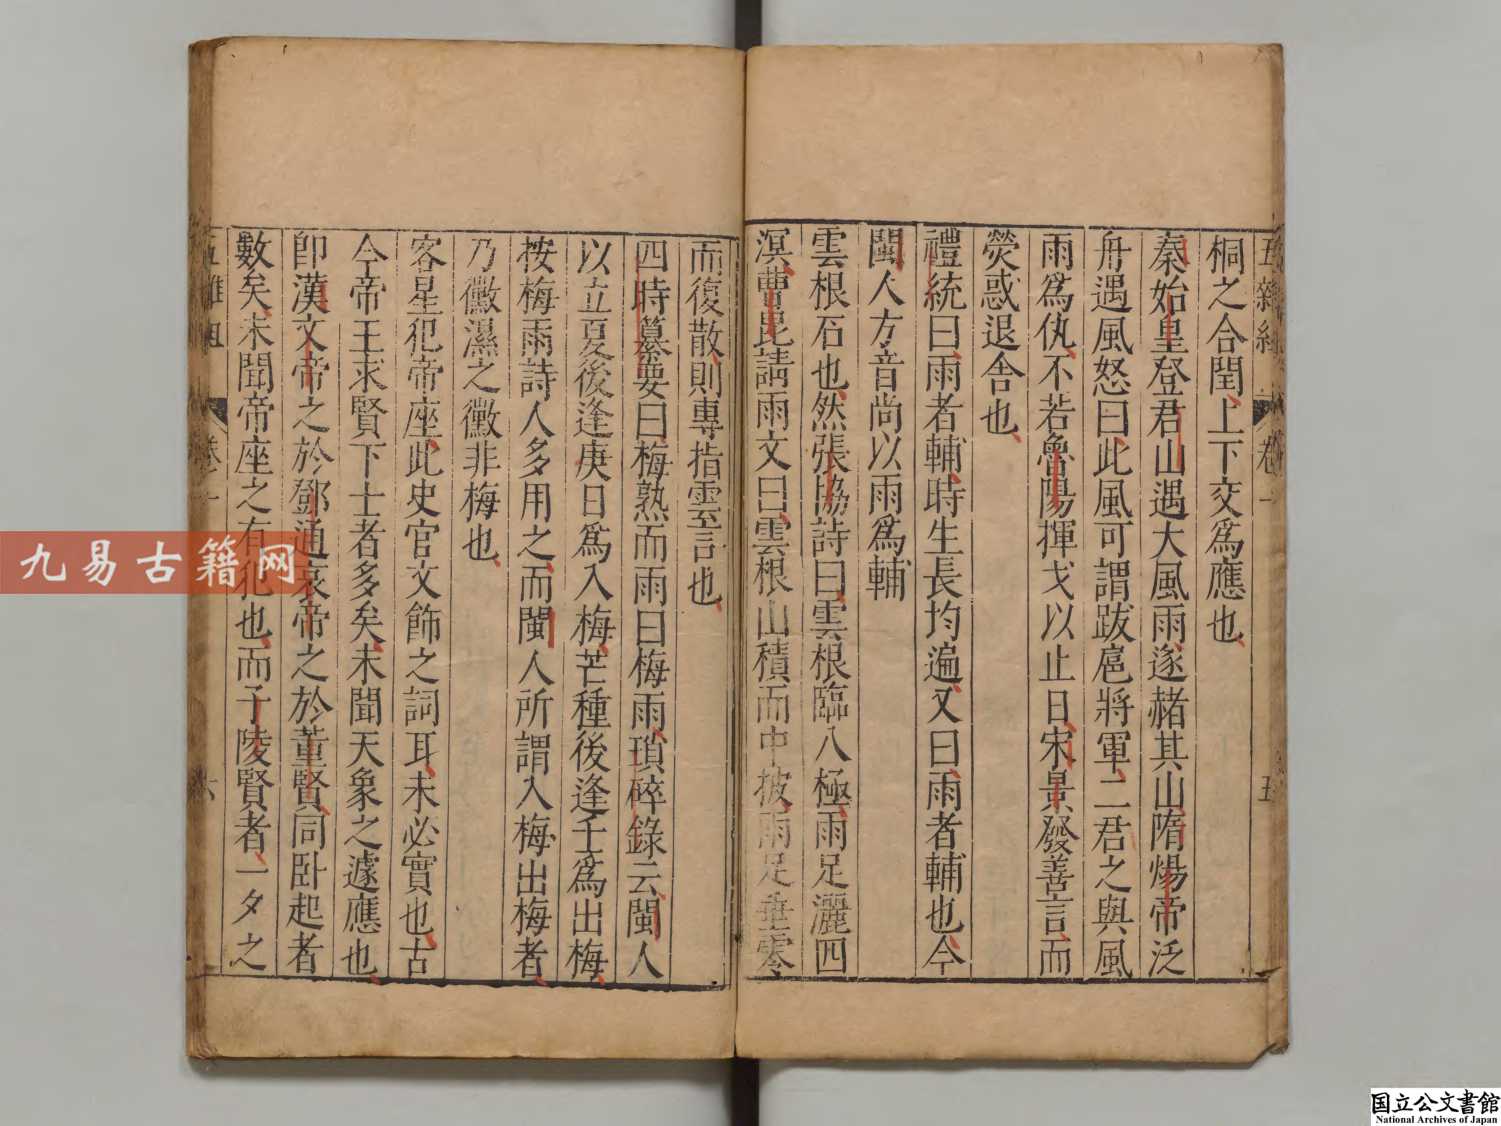 五雜組 卷一 五
桐之合閏、上下交爲應也、
秦始皇登君山遇大風雨、遂赭其山、隋煬帝泛
舟遇風怒曰、此風可謂跋扈將軍、二君之與風
雨爲仇、不若魯陽揮戈以止日、宋景發善言、而
熒惑退舍也、
禮統曰、雨者輔、時生長均遍、又曰、雨者輔也、今
閩人方音尚以雨爲輔
雲根石也、然張協詩曰、雲根臨八極、雨足灑四
溟、曹毘請雨文曰、雲根山積而中披、雨足垂零、
而復散、則專指雲言也、
四時纂要曰、梅熟而雨曰梅雨、瑣碎錄云、閩人
以立夏後逢庚日爲入梅、芒種後逢壬爲出梅、
按梅雨詩人多用之、而閩人所謂入梅出梅者、
乃黴濕之黴非梅也、
客星犯帝座、此史官文飾之詞耳、未必實也、古
今帝王求賢下士者多矣、未聞天象之遽應也、
卽漢文帝之於鄧通哀帝之於董賢、同卧起者
數矣、未聞帝座之有犯也、而子陵賢者、一夕之
五雜組 卷一 六
九易古籍网
国立公文書館
National Archives of Japan